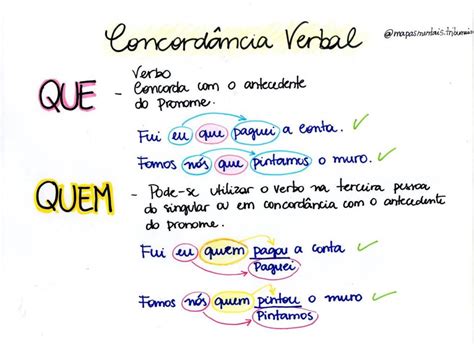 Concordância Verbal
@mapasmentais.tribunais
QUE
Verbo
- Concorda com o antecedente
do pronome.
Fui eu que paguei a conta. ✓
Fomos nós que pintamos o muro. ✓
QUEM
- Pode-se utilizar o verbo na terceira pessoa
do singular ou em concordância com o antecedente
do pronome.
Fui eu quem pagou a conta ✓
Paguei
Fomos nós quem pintou o muro ✓
Pintamos